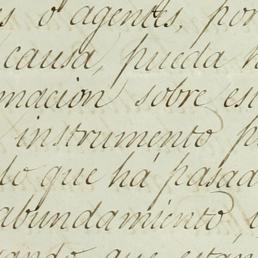 o agentes, por
causa, pueda
mación sobre es
instrumento p
lo que há pasad
abundamiento,
que estan